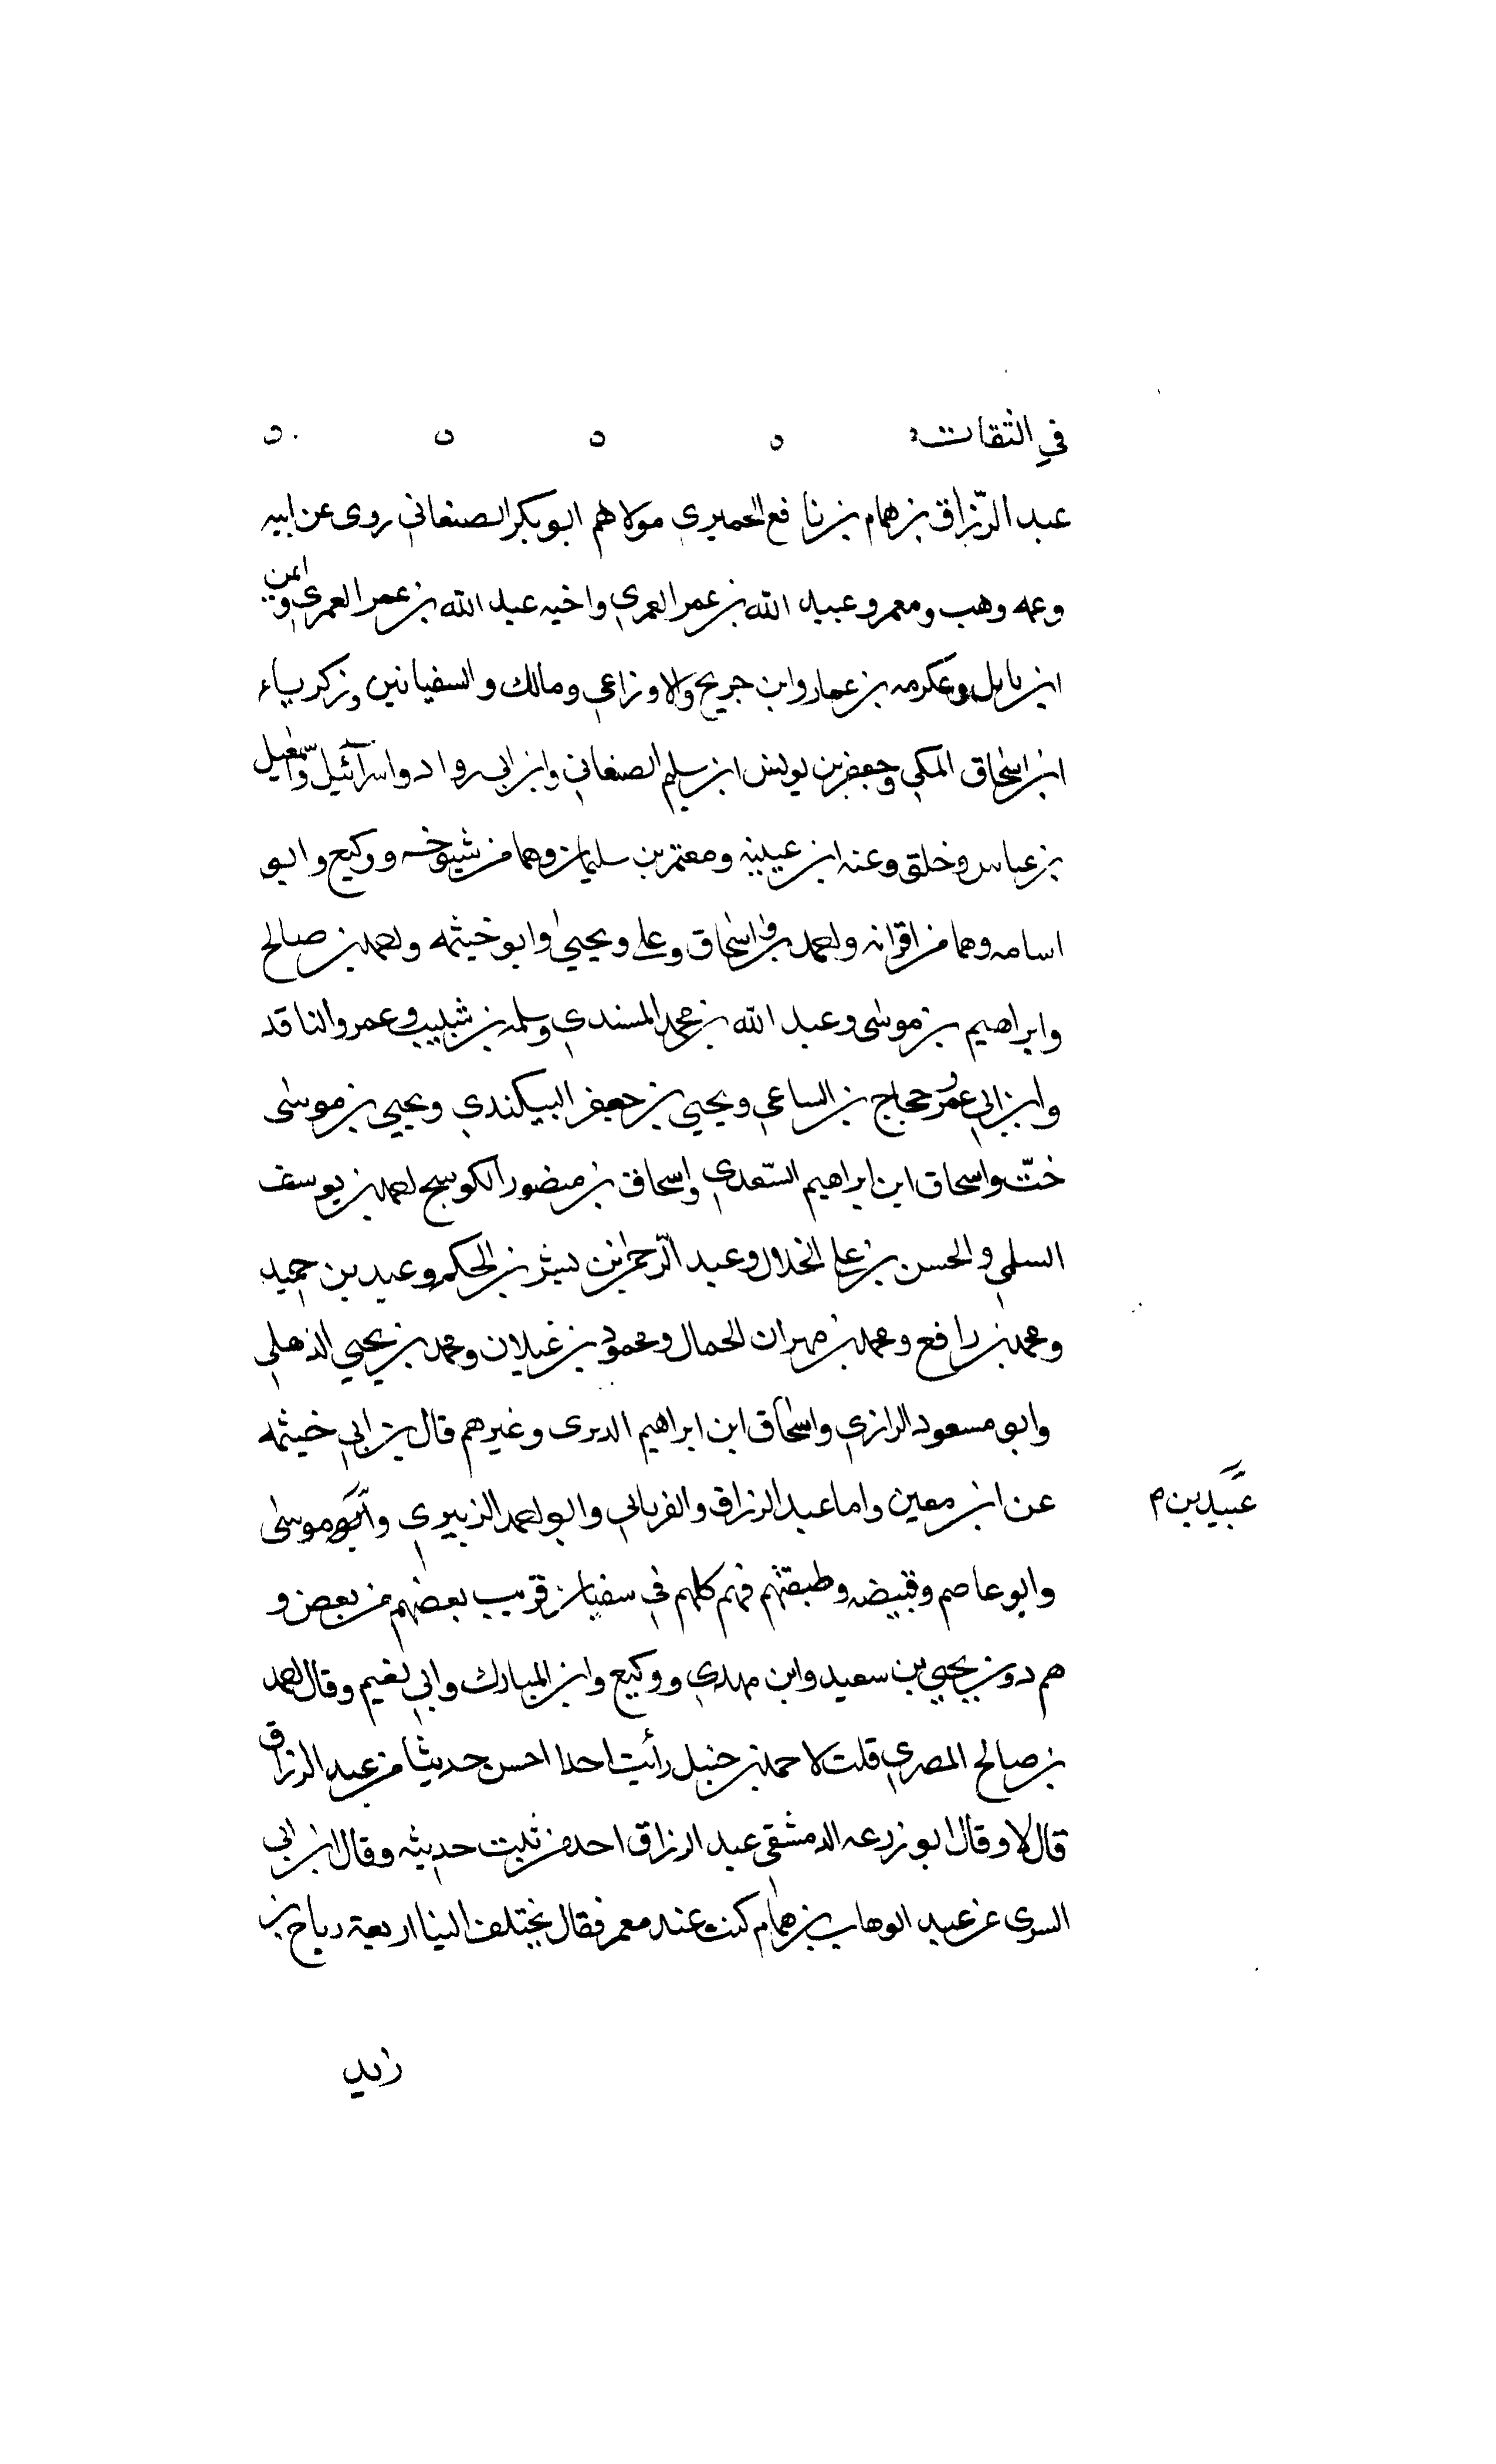 في الثقات ه ه ه ه
عبد الرّزاق بن همام بن نافع الحميري مولاهم ابو بكر الصنعاني روى عن ابيه
وعمه وهب ومعمر وعبيد الله بن عمر العمري واخيه عبد الله بن عمر العمري وايمن
ابن نابل وعكرمه بن عمار وابن جريج والاوزاعي ومالك والسفيانين وزكرياء
ابن اسحاق المكي وجعفر بن يونس ابن سليم الصنعاني وابن ابي رواد واسرآئيل واسمعيل
بن عباس وخلق وعنه ابن عيينه ومعتمر بن سليمان وهما من شيوخه ووكيع وابو
اسامه وهما من اقرانه واحمد واسحاق وعلي ويحيى وابو خيثمه واحمد بن صالح
وابراهيم بن موسى وعبد الله بن محمد المسندي وسلمه بن شبيب وعمرو الناقد
وابن ابي عمر وحجاج بن الساعي ويحيي بن جعفر البيكندي ويحيي بن موسى
ختّ واسحاق ابن ابراهيم السّعدي واسحاق بن منصور الكوسج احمد بن يوسف
السلمي والحسن بن علي الخلال وعبد الرّحمن بن بشر بن الحكم وعبد بن حميد
ومحمد بن رافع ومحمد بن مهران الحمال ومحمود بن غيلان ومحمد بن يحيي الذهلي
وابو مسعود الرازي واسحاق ابن ابراهيم الدبرى وغيرهم قال بن ابي خيثمه
عن ابن معين واما عبد الرزاق والفريابي وابو احمد الزبيري وابو موسى
عبيد بن م
وابو عاصم وقبيضه وطبقتهم فهم كلهم في سفيان قريب بعضهم من بعض و
هم دون يحيي بن سعيد وابن مهدي ووكيع وابن المبارك وابي نعيم وقال احمد
بن صالح المصري قلت لاحمد بن حنبل رأيت احدا احسن حديثا من عبد الرزاق
قال لا وقال ابو زرعه الدمشقي عبد الرزاق احد من ثبت حديثه وقال ابن ابي
السرى عن عبد الوهاب بن همام كنت عند معمر فقال يختلف الينا اربعة رباح بن
زيد